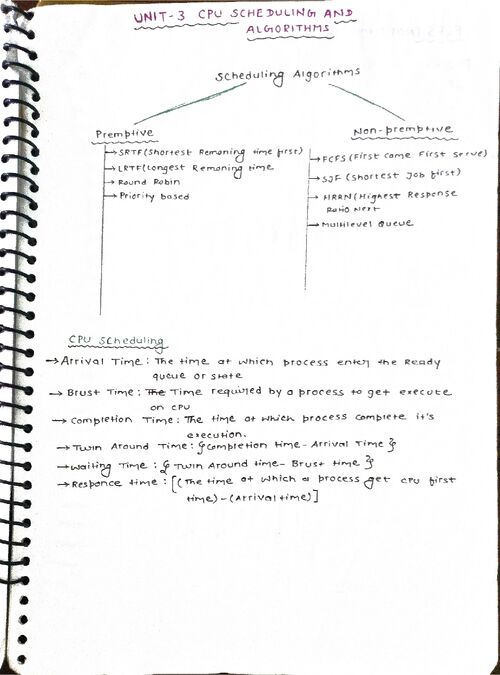 UNIT-3 CPU SCHEDULING AND
ALGORITHMS
Scheduling Algorithms
Premptive
→SRTF(Shortest Remaning time first)
→LRTF(Longest Remaning time
→Round Robin
→Priority based
Non-premptive
→FCFS (First Come First Serve)
→SJF (Shortest Job first)
→HRRN(Highest Response
Ratio Next
→Multilevel Queue
CPU Scheduling
→Arrival Time: The time at which process enter the Ready
queue or state
→ Brust Time: The Time required by a process to get execute
on CPU
→ Completion Time: The time at which process complete it's
execution.
→ Turn Around Time: {Completion time - Arrival Time}
→ Waiting Time: { Turn Around time - Brust time }
→ Responce time: [(The time at which a process get CPU first
time) - (Arrival time)]